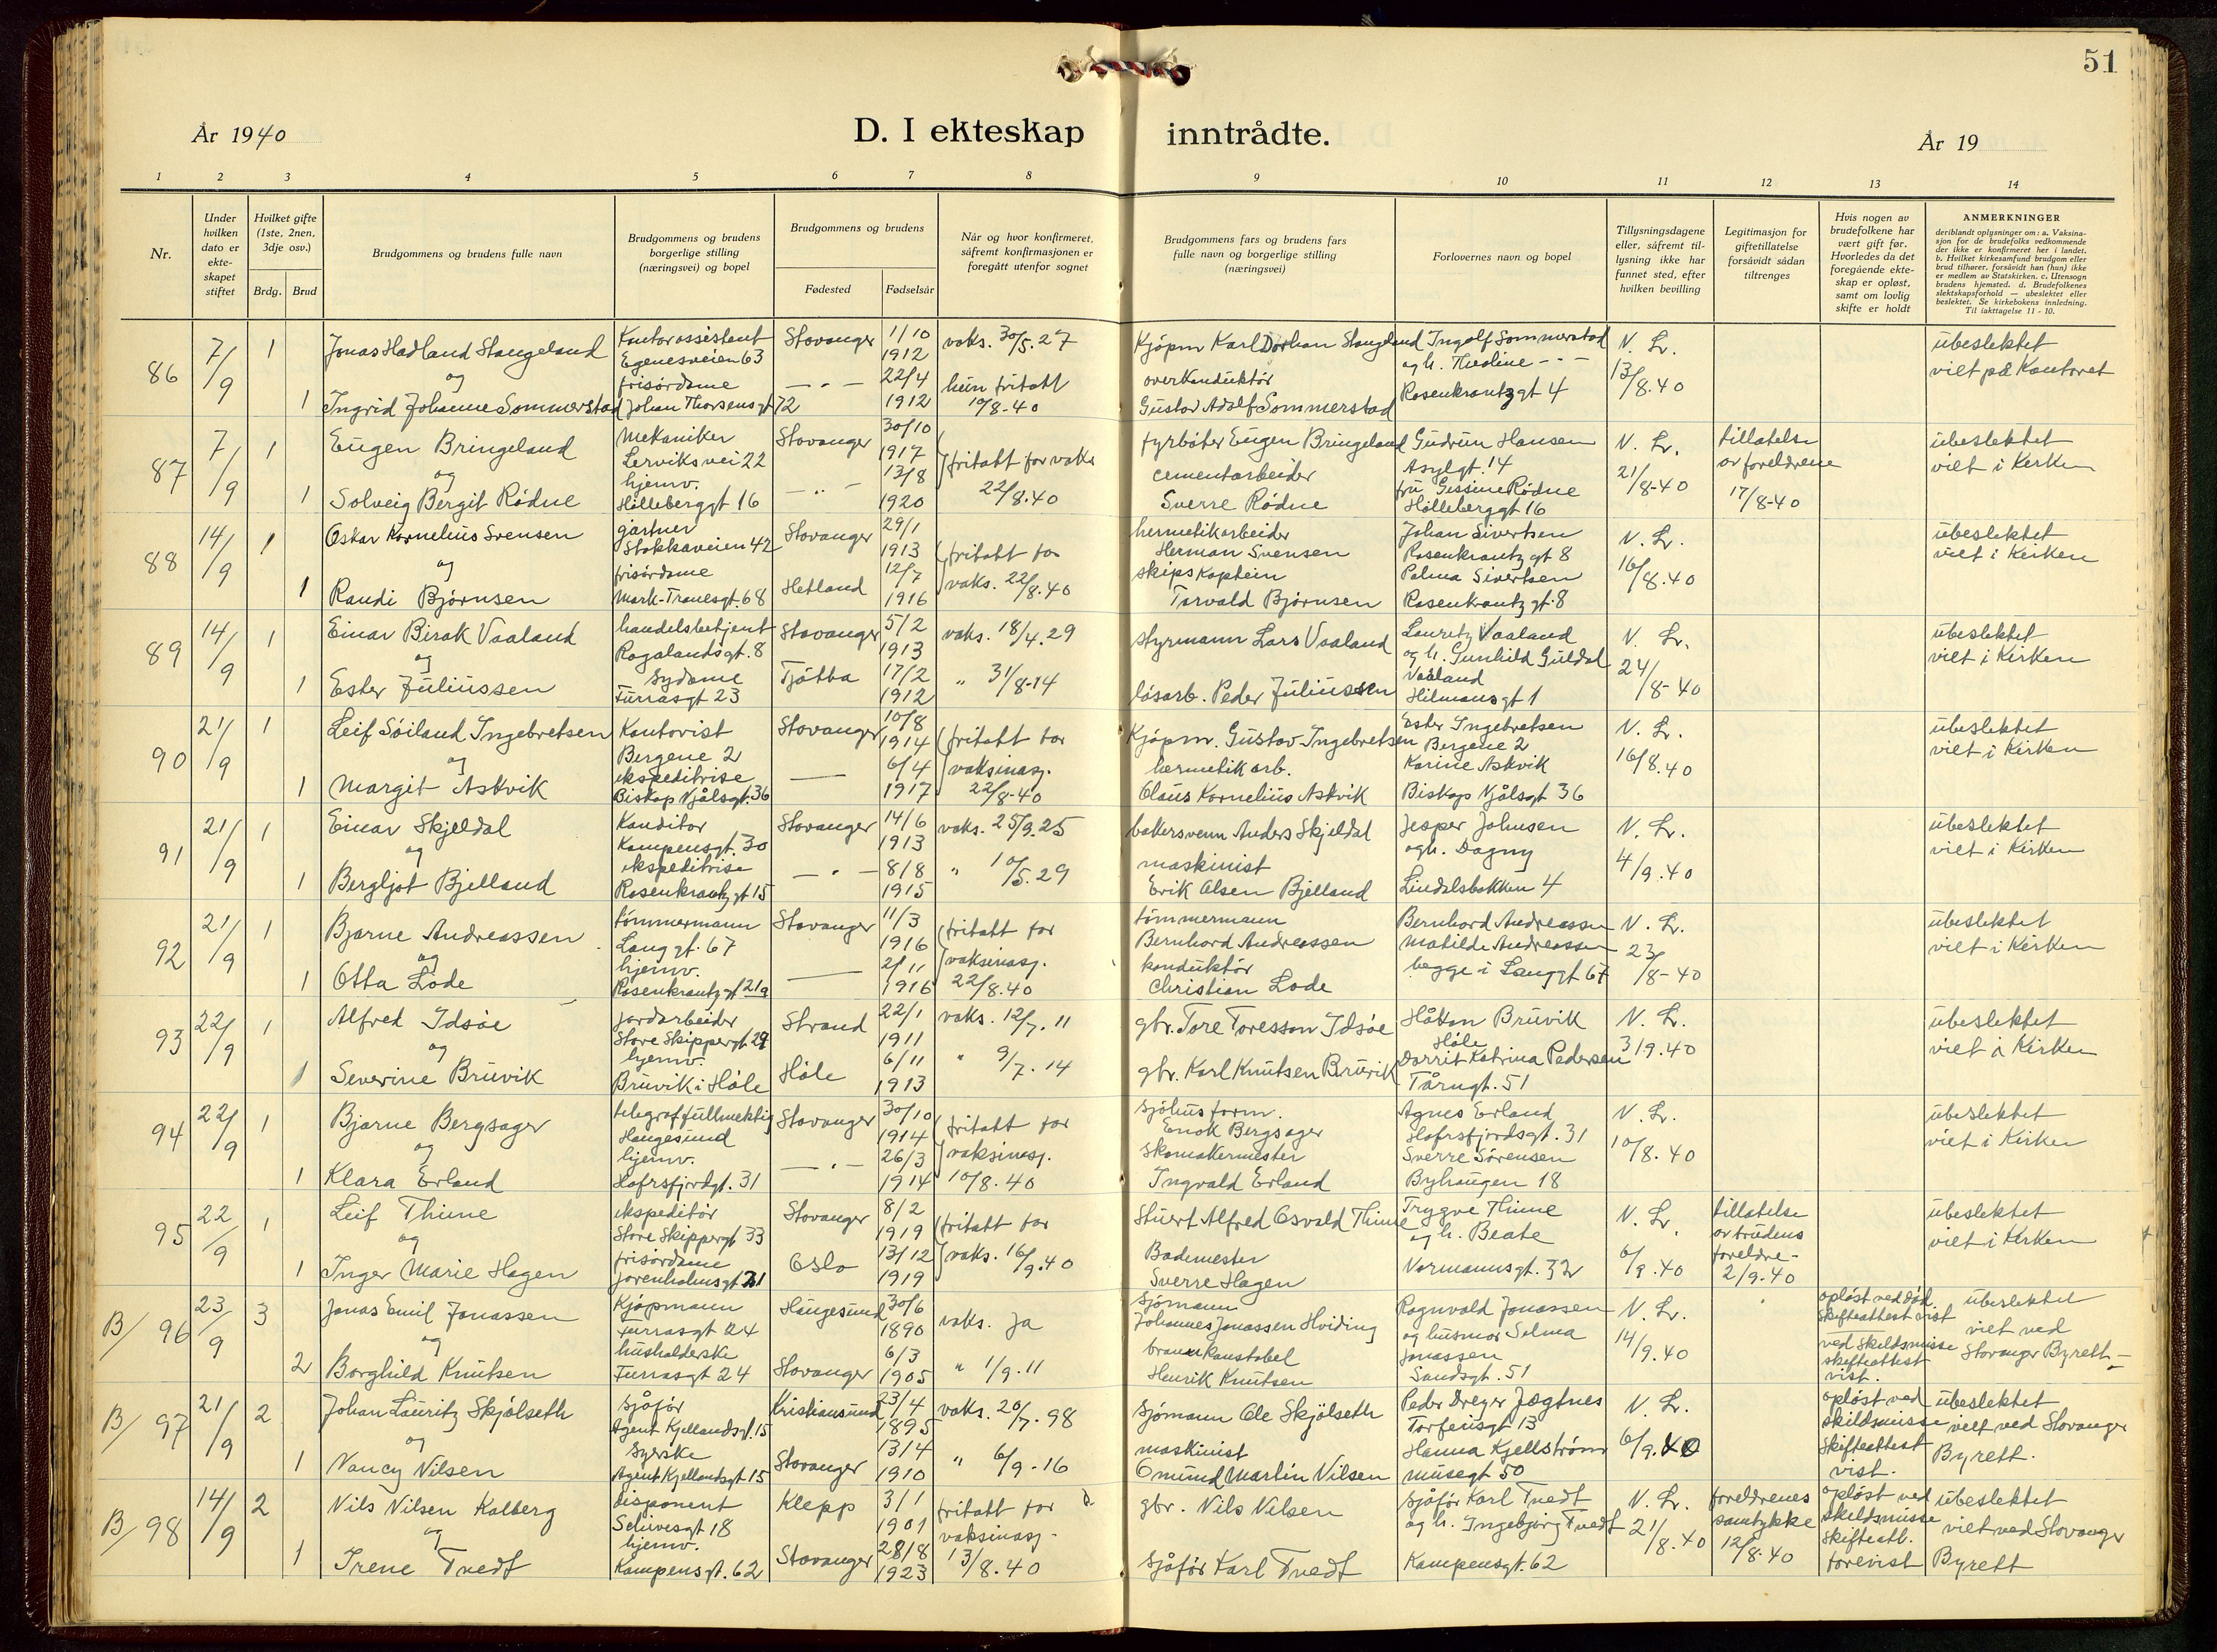 51
År 1940
D. I ekteskap inntrådte.
År 19
1 2 3 4 5 6 7 8 9 10 11 12 13 14
Nr.
Under hvilken dato er ekte-skapet stiftet
Hvilket gifte (1ste, 2nen, 3dje osv.)
Brdg. Brud
Brudgommens og brudens fulle navn
Brudgommens og brudens borgerlige stilling (næringsvei) og bopel
Brudgommens og brudens
Fødested
Fødselsår
Når og hvor konfirmeret, såfremt konfirmasjonen er foregått utenfor sognet
Brudgommens fars og brudens fars fulle navn og borgerlige stilling (næringsvei)
Forlovernes navn og bopel
Tillysningsdagene eller, såfremt til-lysning ikke har funnet sted, efter hvilken bevilling
Legitimasjon for giftetillatelse forsåvidt sådan tiltrenges
Hvis nogen av brudefolkene har vært gift før. Hvorledes da det foregående ekte-skap er opløst, samt om lovlig skifte er holdt
ANMERKNINGER
deriblandt oplysninger om: a. Vaksina-sjon for de brudefolks vedkommende der ikke er konfirmeret her i landet. b. Hvilket kirkesamfund brudgom eller brud tilhører, forsåvidt han (hun) ikke er medlem av Statskirken. c. Utensogn brudens hjemsted. d. Brudefolkenes slektskapsforhold — ubeslektet eller beslektet. Se kirkebokens innledning. Til iakttagelse 11 - 10.
86 7/9 1 Jonas Hadland Stangeland Kontorassistent Egenesveien 63 Stavanger 1/10 1912 vaks. 30/5. 27 Kjøpm Karl Dørhan Stangeland Ingolf Sommerstad N. Lr. ubeslektet
og
1 Ingrid Johanne Sommerstad frisørdame Johan Thorsensgt 72 — " — 22/4 1912 hun fritatt 19/8-40 overkonduktør Gustav Adolf Sommerstad og h. Theoline - - - Rosenkrantzgt 4 13/8.40 viet på Kontoret
87 7/9 1 Eugen Bringeland Mekaniker Lerviksvei 22 Stavanger 30/10 1917 fritatt for vaks fyrbøter Eugen Bringeland Gudrun Hansen Asylgt. 14 N. Lr. tillatelse av foreldrene ubeslektet
og
1 Solveig Bergit Rødne hjemv. Hølleberggt 16 — " — 13/8 1920 22/8.40 cementarbeider Sverre Rødne fru Gessine Rødne Hølleberggt 16 21/8-40 17/8-40 viet i Kirken
88 14/9 1 Oskar Kornelius Svensen gartner Stokkaveien 42 Stavanger 29/1 1913 fritatt for hermetikarbeider Herman Svensen Johan Sivertsen Rosenkrantzgt 8 N. Lr. ubeslektet
og
1 Randi Bjørnsen frisørdame Mark-Tranesgt. 68 Hetland 12/7 1916 vaks. 22/8.40 skipskaptein Torvald Bjørnsen Palma Sivertsen Rosenkrantzgt. 8 16/8.40 viet i Kirken
89 14/9 1 Einar Birak Vaaland handelsbetjent Rogalandsgt. 8 Stavanger 5/2 1913 vaks. 18/4.29 styrmann Lars Vaaland Lauritz Vaaland N. Lr. ubeslektet
og
1 Ester Juliussen Sydame Furrasgt 23 Tjøtta 17/2 1912 " 31/8-14 løsarb. Peder Juliussen og h. Gunhild Guldal Vaaland Hilmansgt 1 24/8-40 viet i Kirken
90 21/9 1 Leif Søiland Ingebretsen Kontorist Bergene 2 Stavanger 10/8 1914 fritatt for Kjøpm. Gustav Ingebretsen Ester Ingebretsen Bergene 2 N. Lr. ubeslektet
og
1 Margit Askvik ekspeditrise Biskop Njålsgt. 36 — 6/4 1917 vaksinasj. 22/8-40 hermetikarb. Olaus Kornelius Askvik Karine Askvik Biskop Njålsgt 36 16/8.40 viet i Kirken
91 21/9 1 Einar Skjeldal Konditor Kampensgt. 30 Stavanger 14/6 1913 vaks. 25/9.25 bakersvenn Anders Skjeldal Jesper Johnsen N. Lr. ubeslektet
og
1 Bergljot Bjelland ekspeditrise Rosenkrantzgt 15 — " — 8/8 1915 " 10/5.29 maskinist Erik Olsen Bjelland og h. Dagny Lindalsbakken 4 4/9.40 viet i Kirken
92 21/9 1 Bjarne Andreassen tømmermann Langgt. 67 Stavanger 11/3 1916 fritatt for tømmermann Bernhard Andreassen Bernhard Andreassen N. Lr. ubeslektet
og
1 Otta Lode hjemv. Rosenkrantzgt 21a — 2/11 1916 vaksinasj. 22/8.40 konduktør Christian Lode Matilde Andreassen begge i Langgt 67 23/8-40 viet i Kirken
93 22/9 1 Alfred Idsøe jordarbeider Store Skippergt. 29 Strand 22/1 1911 vaks. 12/7. 11 gbr. Tore Toresson Idsøe Håkon Bruvik Høle N. L. ubeslektet
og
1 Severine Bruvik hjemv. Bruvik i Høle Høle 6/11 1913 " 9/7. 14 gbr. Karl Knutsen Bruvik Dorrit Katrina Pedersen Tårngt. 51 3/9.40 viet i Kirken
94 22/9 1 Bjarne Bergsager telegraffullmektig Haugesund Stavanger 30/10 1914 fritatt for sjøhusform. Enok Bergsager Agnes Erland Hafrsfjordsgt. 31 N. Lr. ubeslektet
og
1 Klara Erland hjemv. Hafrsfjordgt. 31 — " — 26/3 1914 vaksinasj. 10/8. 40 skomakermester Ingvald Erland Sverre Sørensen Byhaugen 18 10/8.40 viet i Kirken
95 22/9 1 Leif Thime ekspeditør Store Skippergt 33 Stavanger 8/2 1919 fritatt for Stuert Alfred Osvald Thime Trygve Thime N. Lr. tillatelse av brudens ubeslektet
og
1 Inger Marie Hagen frisørdame Jorenholmsgt 21 Oslo 13/12 1919 vaks. 16/9.40 Bademester Sverre Hagen og h. Beate Normannsgt. 32 6/9.40 foreldre - 2/9.40 viet i Kirken
B/ 96 23/9 3 Jonas Emil Jonassen Kjøpmann Furrasgt 24 Haugesund 30/6 1890 vaks. Ja Sjømann Johannes Jonassen Hviding Ragnvald Jonassen N. Lr. opløst ved død Skifteattest vist ubeslektet
og
2 Borghild Knutsen husholderske Furrasgt 24 Stavanger 6/3 1905 " 1/9.11 brannkonstabel Henrik Knutsen og husmor Selma Jonassen Sandsgt. 51 14/9.40 ved Skilsmisse skifteattest vist. viet ved Stavanger Byrett -
B/ 97 21/9 2 Johan Lauritz Skjølseth sjåfør Agent Kjellandsgt. 15 Kristiansund 23/4 1895 vaks. 20/7. 98 Sjømann Ole Skjölseth Peder Dreyer Jægtnes Torfeusgt 13 N. Lr. opløst ved skildsmisse ubeslektet
og
1 Nancy Nilsen Syerske Agent Kjellandsgt 15 Stavanger 13/4 1910 " 6/9-16 maskinist Omund Martin Nilsen Hanna Kjellstrøm Musegt 50 6/9.40 Skifteattest vist. viet ved Stavanger Byrett.
B/ 98 14/9 2 Nils Nilsen Kalberg disponent Schivesgt 18 Klepp 3/1 1901 fritatt for gbr. Nils Nilsen sjåfør Karl Tvedt N. Lr. foreldrenes samtykke opløst ved skildsmisse ubeslektet
og
1 Irene Tvedt hjemv. Kampensgt. 62 Stavanger 28/8 1923 vaksinasj - 13/8.40 sjåfør Karl Tvedt og h. Ingebjørg Tvedt Kampensgt. 62 21/8.40 12/8.40 Skifteatt. forevist viet ved Stavanger Byrett